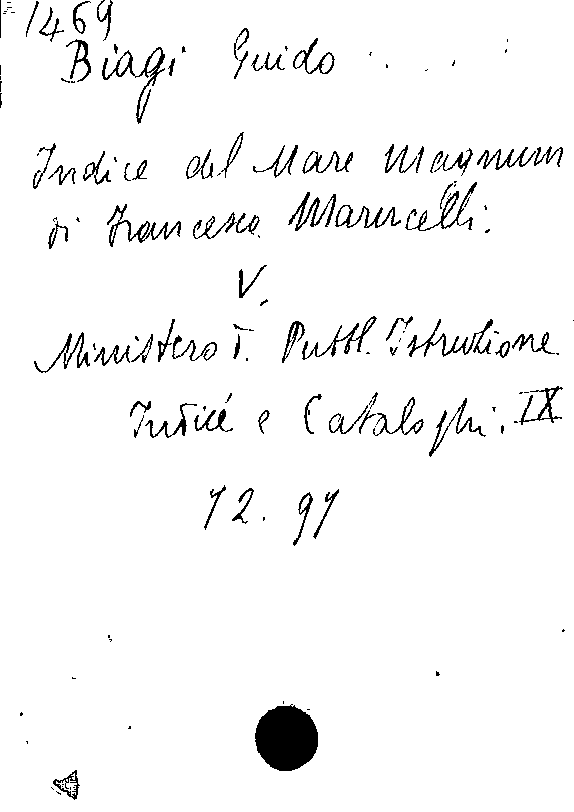 1469
Biagi Guido
Indice del Mare Magnum
di Francesco Marucelli.
V.
Ministero d. Pubbl. Istruzione
Indici e Cataloghi. IX
72. 97